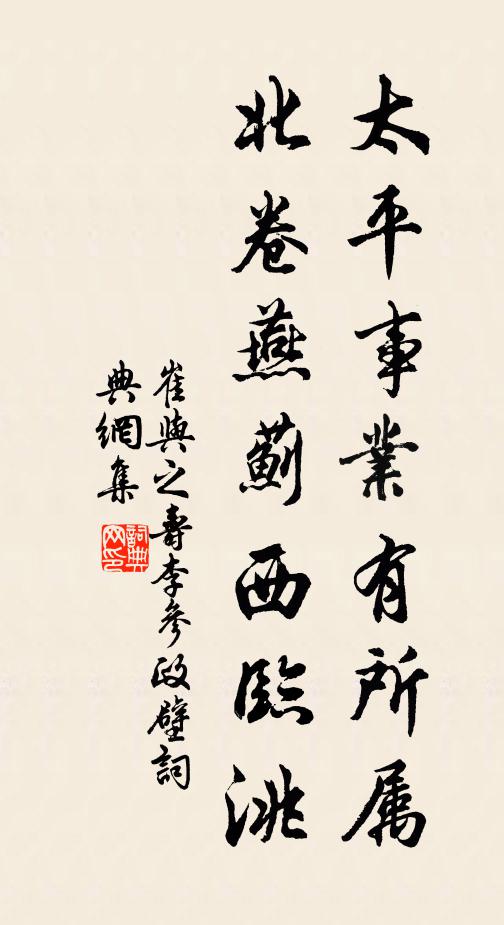 太平事業有所属
北卷燕薊西臨洮
崔與之壽李參政壁詞
典網集
詞典
网印